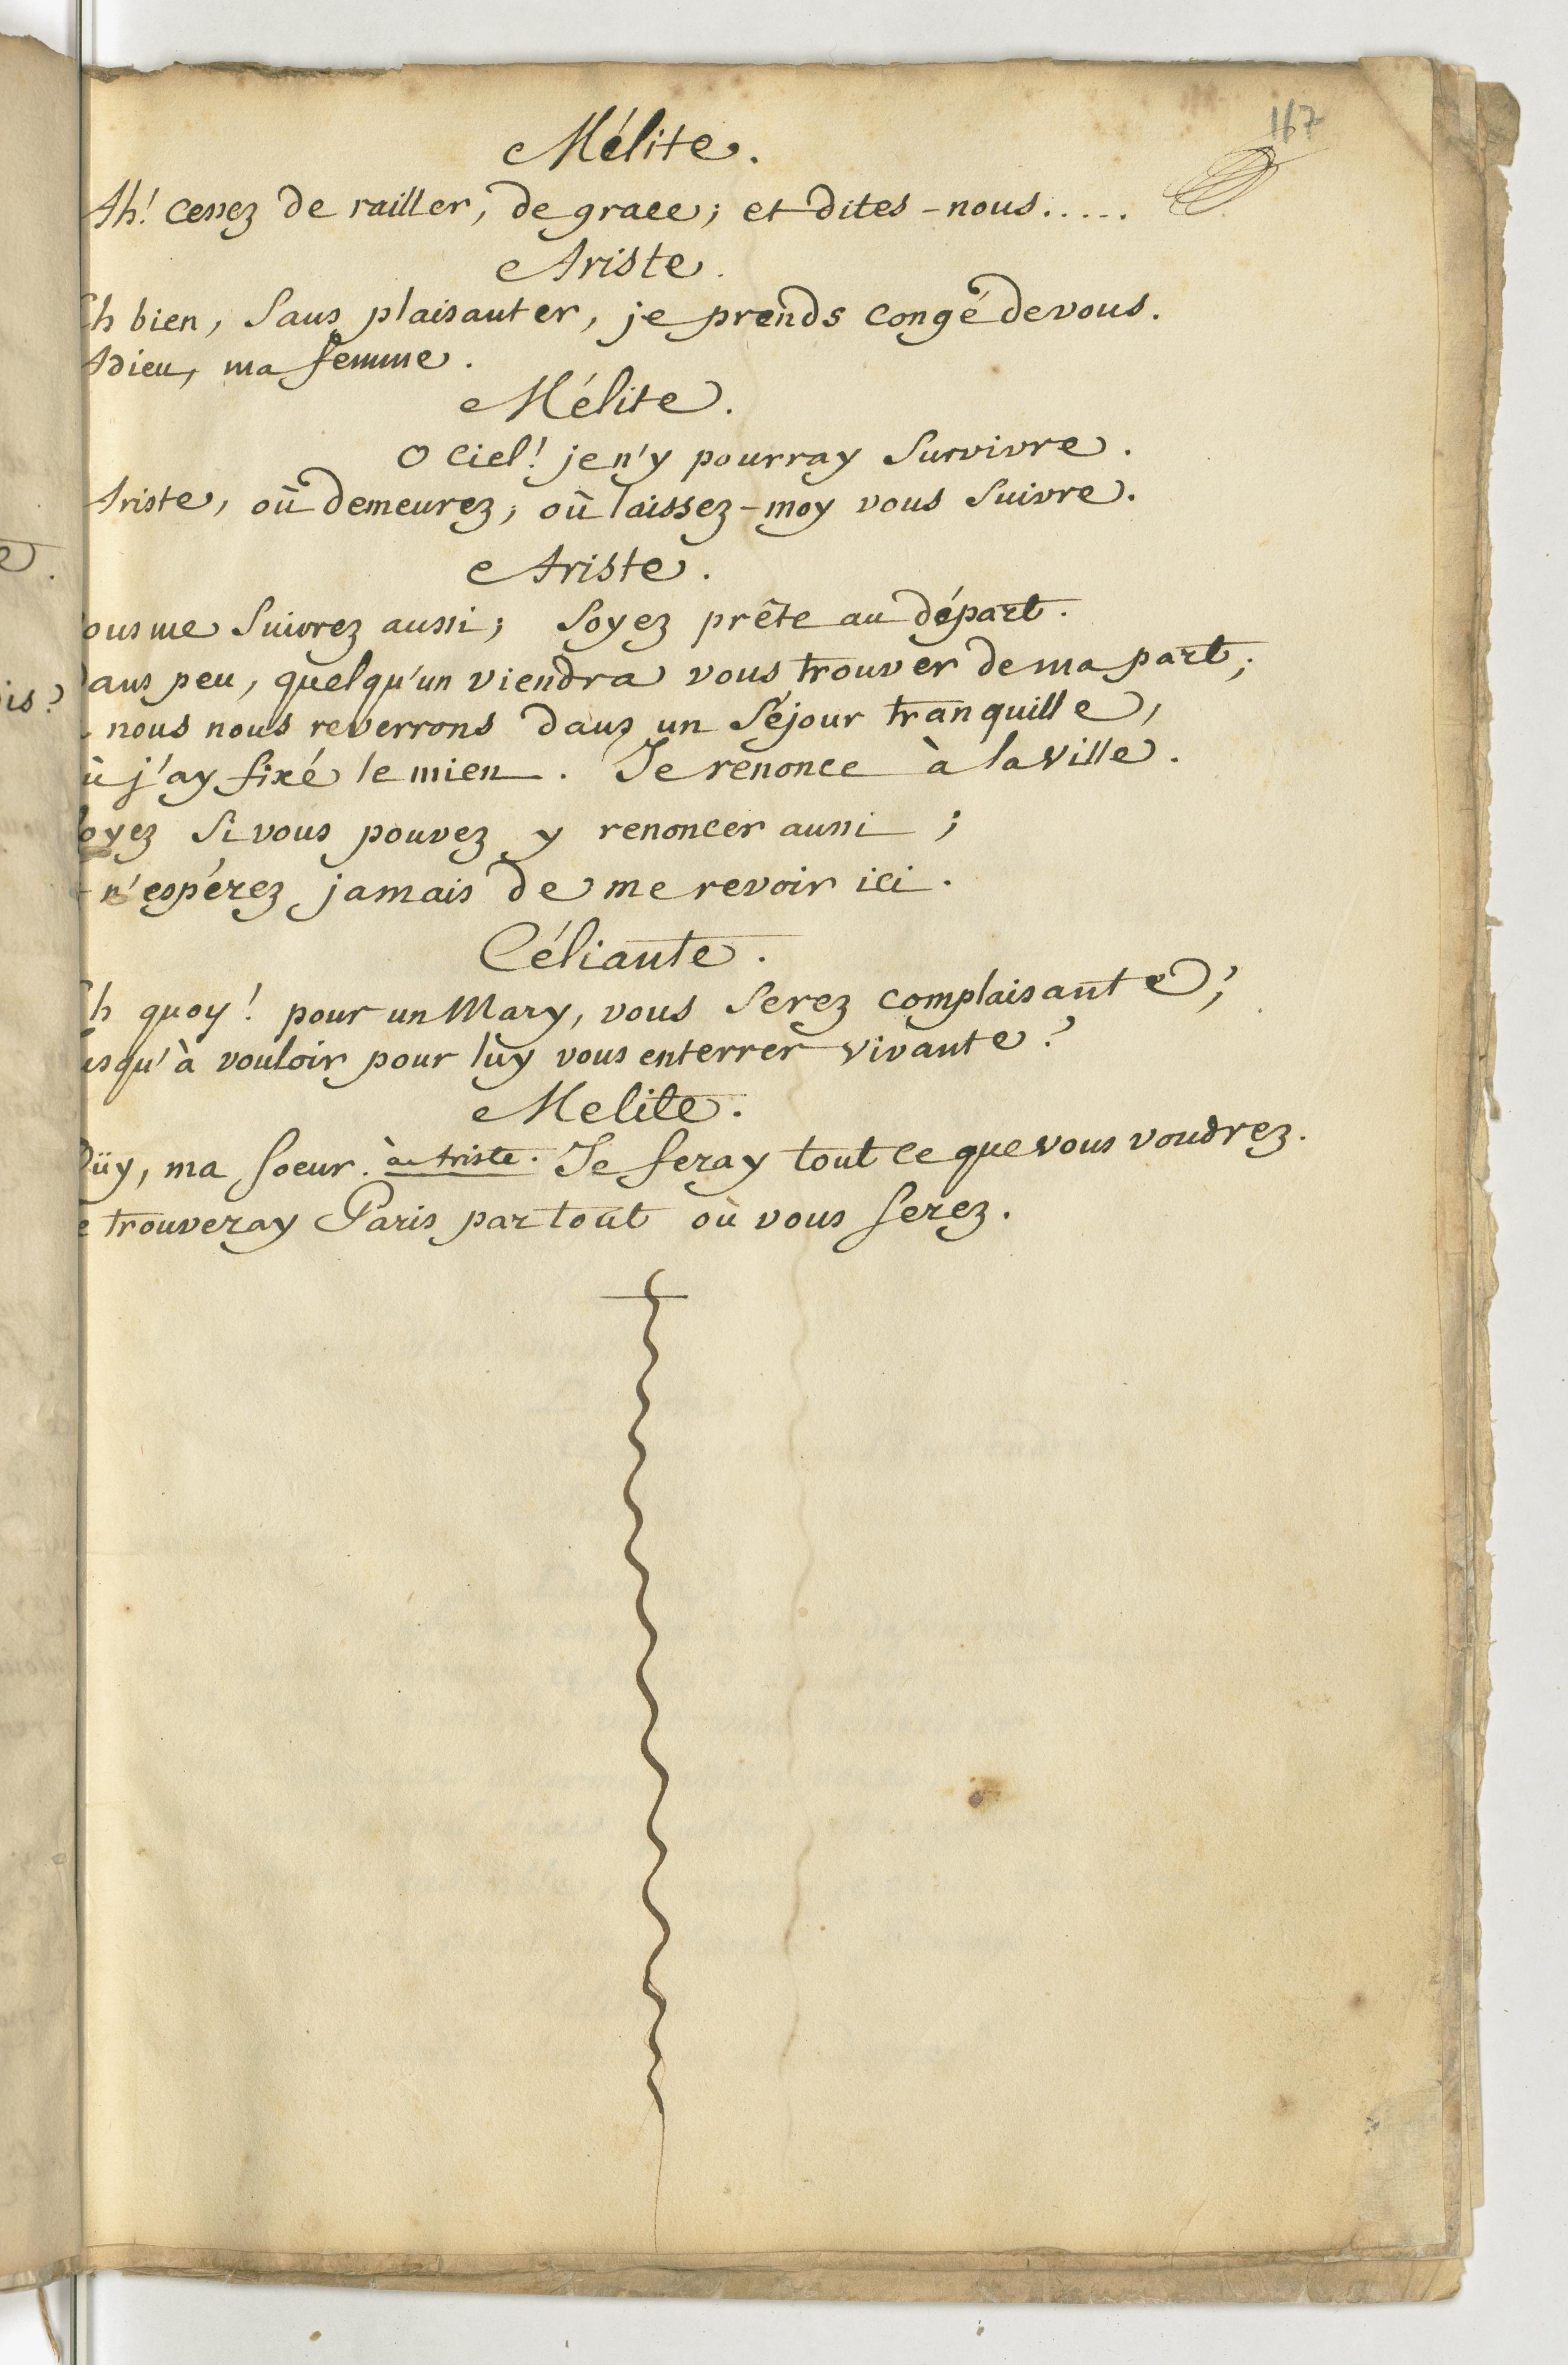 167
Mélite.
Ah! cessez de railler, de grace; et dites-nous.....
Ariste.
Eh bien, Sans plaisanter, je prends congé de vous.
Adieu, ma femme.
Mélite.
O Ciel! je n'y pourray Survivre.
Ariste, où demeurez, où laissez-moy vous Suivre.
Ariste.
ous me Suivrez aussi; Soyez prête au départ.
Dans peu, quelqu'un viendra vous trouver de ma part;
nous nous reverrons dans un Séjour tranquille,
ù j'ay fixé le mien. Je renonce à la Ville.
oyez Si vous pouvez y renoncer aussi;
n'espérez jamais de me revoir ici.
Céliante.
Eh quoy! pour un Mary, vous Serez complaisante,
usqu'à vouloir pour lùy vous enterrer vivante?
Melite.
Oüy, ma Soeur. à Ariste. Je feray tout ce que vous voudrez.
e trouveray Paris partout où vous Serez.
e.
is?